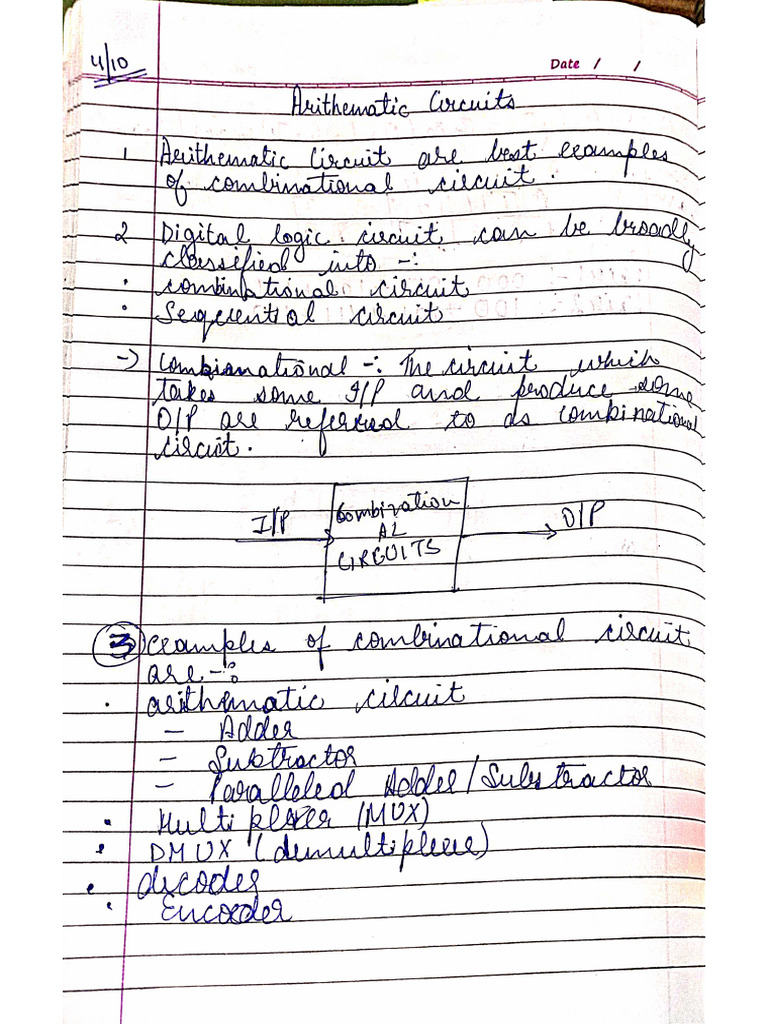 4/10
Date / /
Arithematic Circuits
1 Arithematic Circuit are best examples
of combinational circuit.
2 Digital logic circuit can be broadly
classified into -:
• combinational circuit
• Sequential circuit
-> Combinational -: The circuit which
takes some I/P and produce some
O/P are referred to as combinational
circuit.
I/P
Combination
AL
CIRCUITS
O/P
3 examples of combinational circuit
are -:
• arithematic circuit
- Adder
- Subtractor
- Paralleled Adder/Substractor
• Multiplexer (MUX)
• DMUX (demultiplexer)
• decoder
• Encoder